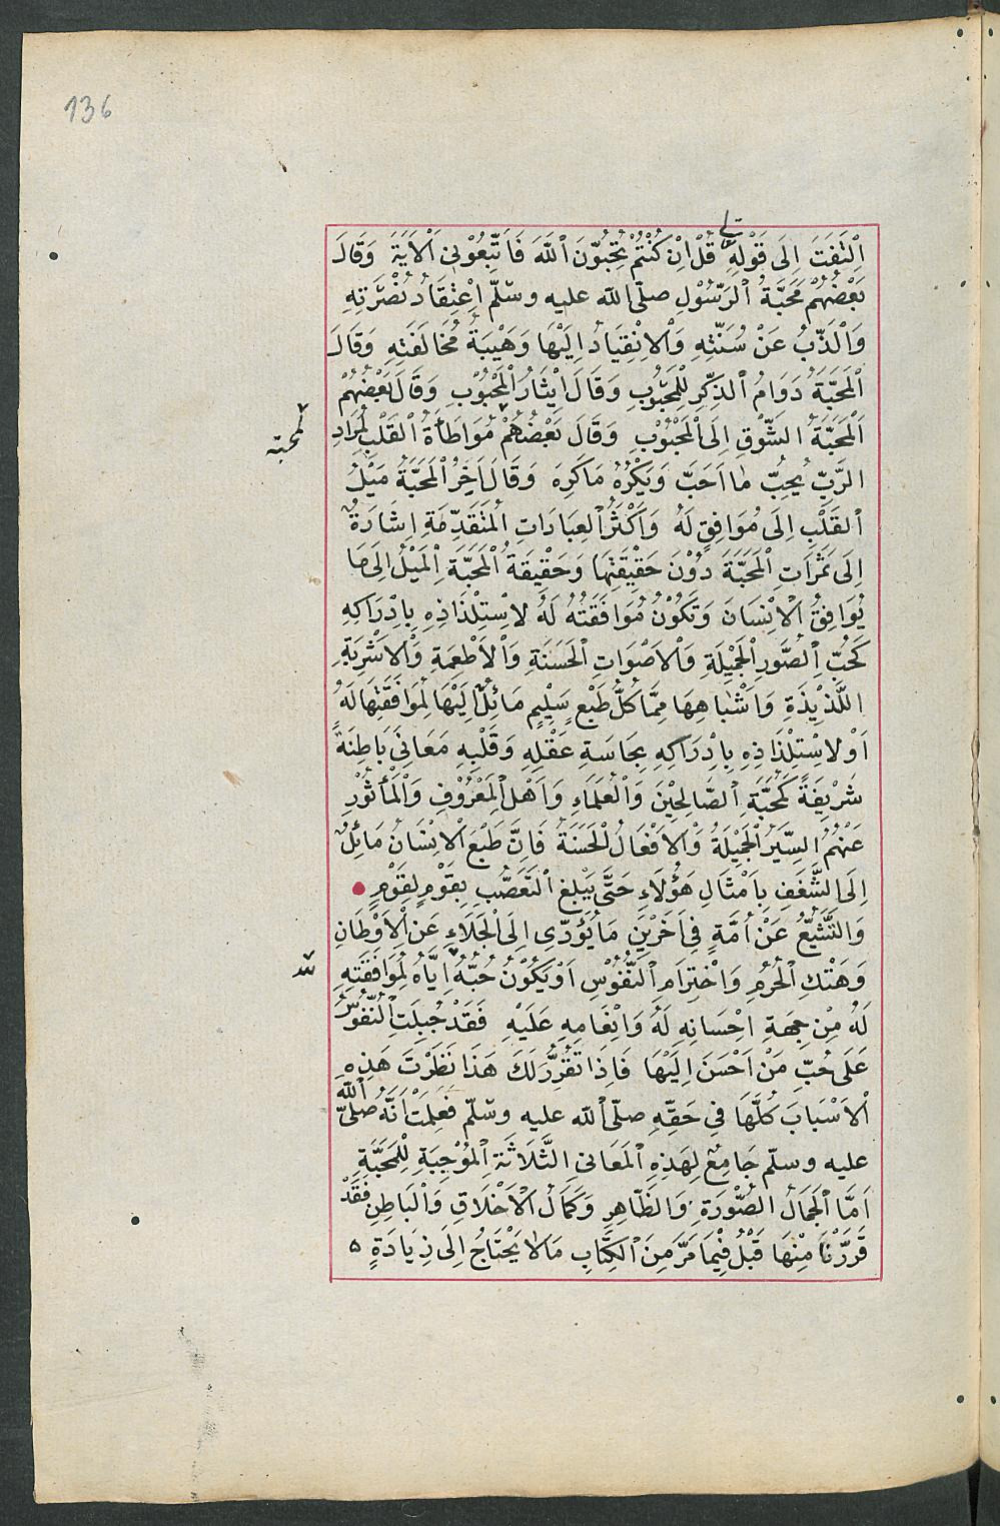 136
اِلْتَفَتَ اِلَى قَوْلِهِ تع قُلْ اِنْ كُنْتُمْ تُحِبُّونَ اَللّٰهَ فَاتَّبِعُوْنِى اَلْاَيَةَ وَقَالَ
بَعْضُهُمْ مَحَبَّةُ اَلرَّسُوْلِ صلّى اللّه عليه وسّلّم اِعْتِقَادُ نُصْرَتِهِ
وَاَلْذَّبُّ عَنْ سُنَّتِهِ وَاَلْاِنْقِيَادُ اِلَيْهَا وَهَيْبَةُ مُخَالَفَتِهِ وَقَالَ
اَلْمَحَبَّةُ دَوَامُ اَلذِّكْرِ لِلْمَحْبُوْبِ وَقَالَ اِيْثَارُ اَلْمَحْبُوْبِ وَقَالَ بَعْضُهُمْ
اَلْمَحَبَّةُ الشَّوْقِ اِلَى اَلْمَحْبُوْبِ وَقَالَ بَعْضُهُمْ مُوَاطَأَةُ اَلْقَلْبِ لِمُرَادِ
المحبّة
الرَّبِّ يُحِبُّ مٰا اَحَبَّ وَيَكْرُهُ مَاكَرِهَ وَقَالَ اَخِرُ اَلْمَحَبَّةُ مَيْلُ
اَلْقَلْبِ اِلَى مُوَافِقٍ لَهُ وَاَكْثَرُ اَلْعِبَارَاتِ الْمُتَقَدِّمَةِ اِشَارَةٌ
اِلَى ثَمَرَاتِ اَلْمَحَبَّةَ دُوْنَ حَقِيْقَتِهَا وَحَقْيقَةُ اَلْمَحَبَّةِ اَلْمَيْلُ اِلَى مَا
يُوَافِقُ اَلْاِنْسَانَ وَتَكُوْنُ مُوَافَقَتُهُ لَهُ لاِسْتِلْذَاذِهِ بِاِدْرَاكِهِ
كَحُبِّ اَلصُّوَرِ اَلْجَمِيْلَةِ وَاْلاَصْوَاتِ اَلْحَسَنَةِ وَاْلاَطْعِمَةِ وَاْلاَشْرِبَةِ
اللَّذِيْذَةِ وَاَشْبٰاهِهَا مِمَّا كُلُّ طَبْعٍ سَلِيْمٍ مَائِلٌ اِلَيْهَا لِمُوَافَقَتِهَا لَهُ
اَوْ لاِسْتِلْذَاذِهِ بِاِدْرَاكِهِ بِحَاسَةِ عَقْلِهِ وَقَلْبِهِ مَعَانِىَ بَاطِنَةً
شَرْيفَةً كَمَحَبَّةِ اَلصَّالِحِيْنَ وَاَلْعُلَمَاءِ وَاَهْلِ اَلْمَعْرُوْفِ وَاَلْمَأْثُوْرِ
عَنْهُمُ السِّيَرُ اَلْجَمِيْلَةُ وَاْلاَفْعَالُ اَلْحَسَنَةُ فَاِنَّ طَبْعَ اْلاِنْسَانُ مَائِلٌ
اِلَى الشَّغَفِ بِاَمْثَالِ هَؤُلَاءِ حَتَّى يَبْلِغَ اَلتَّعَصُّبِ بِقَوْمٍ لِقَوْمٍ
وَالتَّشَيُّعُ عَنْ اُمَّةٍ فِى اَخَرْيِنَ مَا يُؤَدّىِ اِلَى اَلْجَلَاءِ عَنِ اَلْاَوْطَانِ
وَهَتْكِ اَلْحُرُمِ وَاخْتِرَامِ اَلنُّفُوْسِ اَوْ يَكُوْنُ حُبُّهُ اِيَّاهُ لِمُوَافَقَتِهِ
لَهُ مِنْ جِهَةِ اِحْسَانِهِ لَهُ وَاِنْعَامِهِ عَلَيْهِ فَقَدْ جُبِلَتِ اَلنُّفُوْسُ
عَلَى حُبِّ مَنْ اَحْسَنَ اِلَيْهَا فَاِذَا تَقَرَّرَ لَكَ هَذَا نَظَرْتَ هَذِهِ
اْلاَسْبَابَ كُلَّهَا فىِ حَقِّهِ صلّى اللّه عليه وسّلّم فَعَلِمْتَ اَنَّهُ صلّى اللّه
عليه وسلّم جَامِعٌ لِهَذِهِ اَلْمَعَانىِ الثَّلَاثَةِ اَلْمُوْجِبَةِ لِلْمَحَبَّةِ
اَمَّا اَلْجَمَالُ الصُّوْرَةِ وَالظَّاهِرِ وَكَمَالُ اْلاَخْلَاقِ وَاَلْبَاطِنِ فَقَدْ
قَرَّرْنَا مِنْهَا قَبْلُ فِيْمَا مَرَّ مِنَ اَلْكِتَابِ مَالٰا يَحْتَاجُ اِلَى زِيَادَةٍ